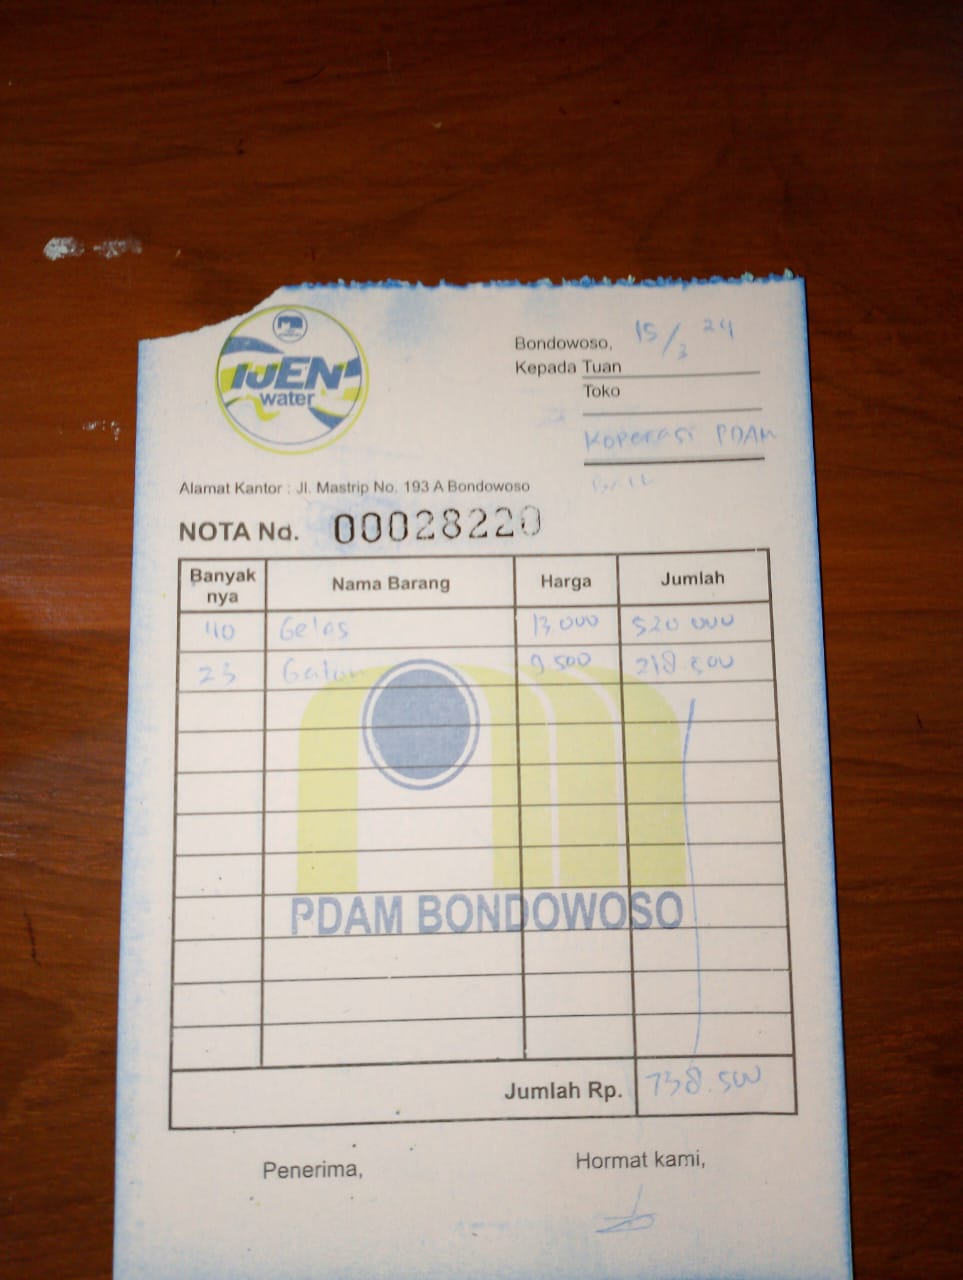 IJEN
water
Bondowoso, 15/3 24
Kepada Tuan
Toko
Koperasi PDAM
Alamat Kantor : Jl. Mastrip No. 193 A Bondowoso
NOTA No. 00028220
Banyak nya Nama Barang Harga Jumlah
40 Gelas 13.000 520 000
23 Galon 9.500 218 500
PDAM BONDOWOSO
Jumlah Rp. 738.500
Penerima, Hormat kami,